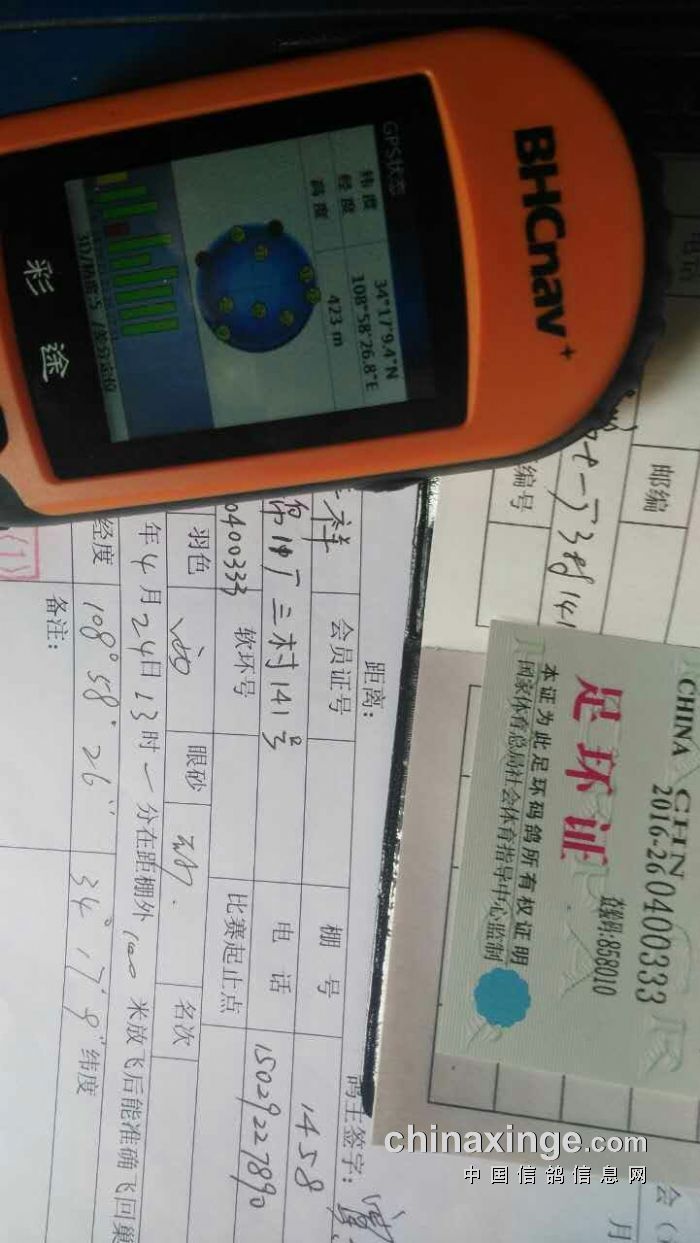 BHCnav+
GPS状态
纬度 34°17'9.4"N
经度 108°58'26.8"E
高度 423 m
彩途
CHINA CHN
2016-26 0400333
查询码:858010
足环证
本证为此足环码鸽所有权证明
国家体育总局社会体育指导中心监制
邮编
编号
距离:
鸽主签字:
祥 会员证号 棚号 1458
三村141号 电话 15029227890
0400333 软环号 比赛起止点
羽色 眼砂 名次
年4月24日13时一分在距棚外100米放飞后能准确飞回巢
经度 108°58'26" 34°17'9" 纬度
备注:
(1)
月
chinaxinge.com
中国信鸽信息网